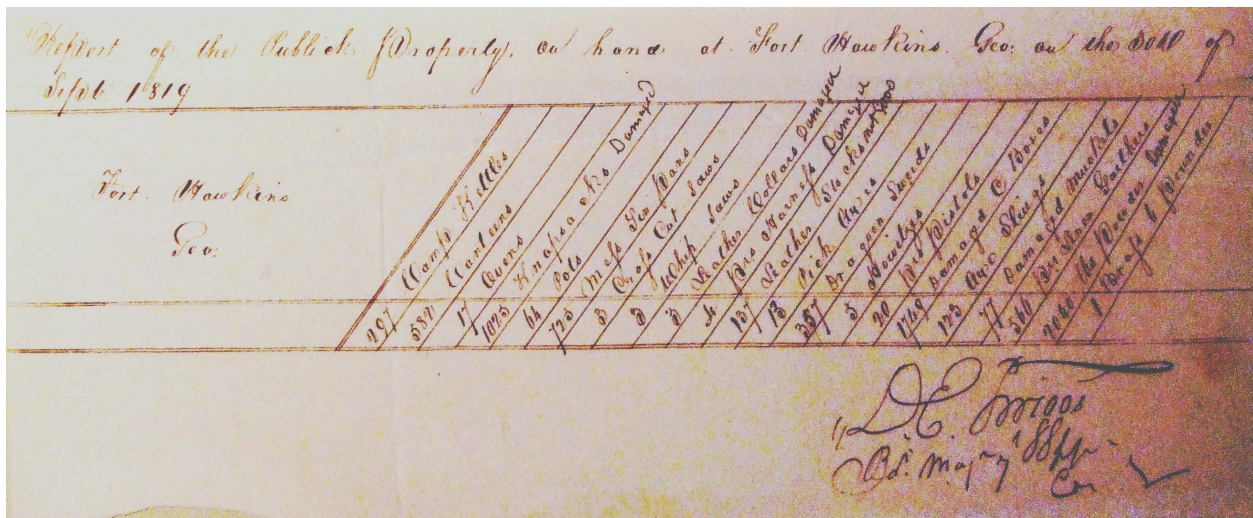 Report of the Publick Property, on hand at Fort Hawkins. Geo: on the 30th of
Septb. 1819
Fort Hawkins
Geo.
Camp Kettles
Canteens
Ovens
Knapsacks Damaged
Pots
Mess Pans
Cross Cut Saws
Whip Saws
Leather Collars Damaged
Prs Harness Damaged
Leather Stocks not good
Pick Axes
Dragoon Swords
Howitzs
Prs Pistols
Damagd C Boxes
Axe Slings
Damaged Muskets
Prs Gaithers
lbs Powder Damaged
Brass 6 pounder
297
582
17
1025
64
725
3
5
3
4
13
13
357
5
20
1749
123
77
366
2040
1
D. E.
Bt. Maj